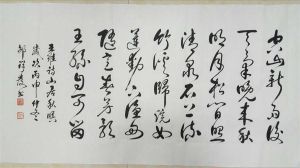 空山新雨後
天氣晚來秋
明月松間照
清泉石上流
竹喧歸浣
蓮動下漁舟
隨意春芳歇
王孫自可留
王維詩山居秋暝
歲次丙申仲冬